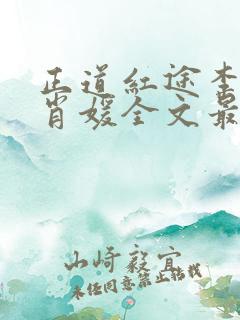 正道红途李
肖媛全文最
山崎毅宜
未经同意禁止转载